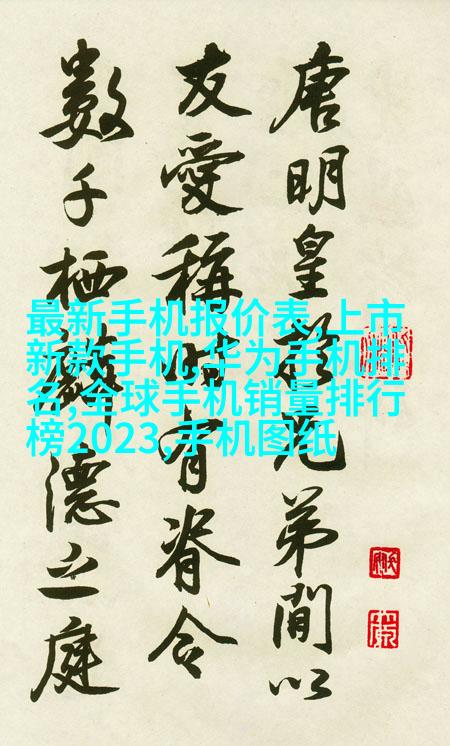 唐明皇於兄弟間以
友愛稱時有脊令
數千栖麟德之庭
最新手机报价表,上市
新款手机,华为手机排
名,全球手机销量排行
榜2023,手机图纸